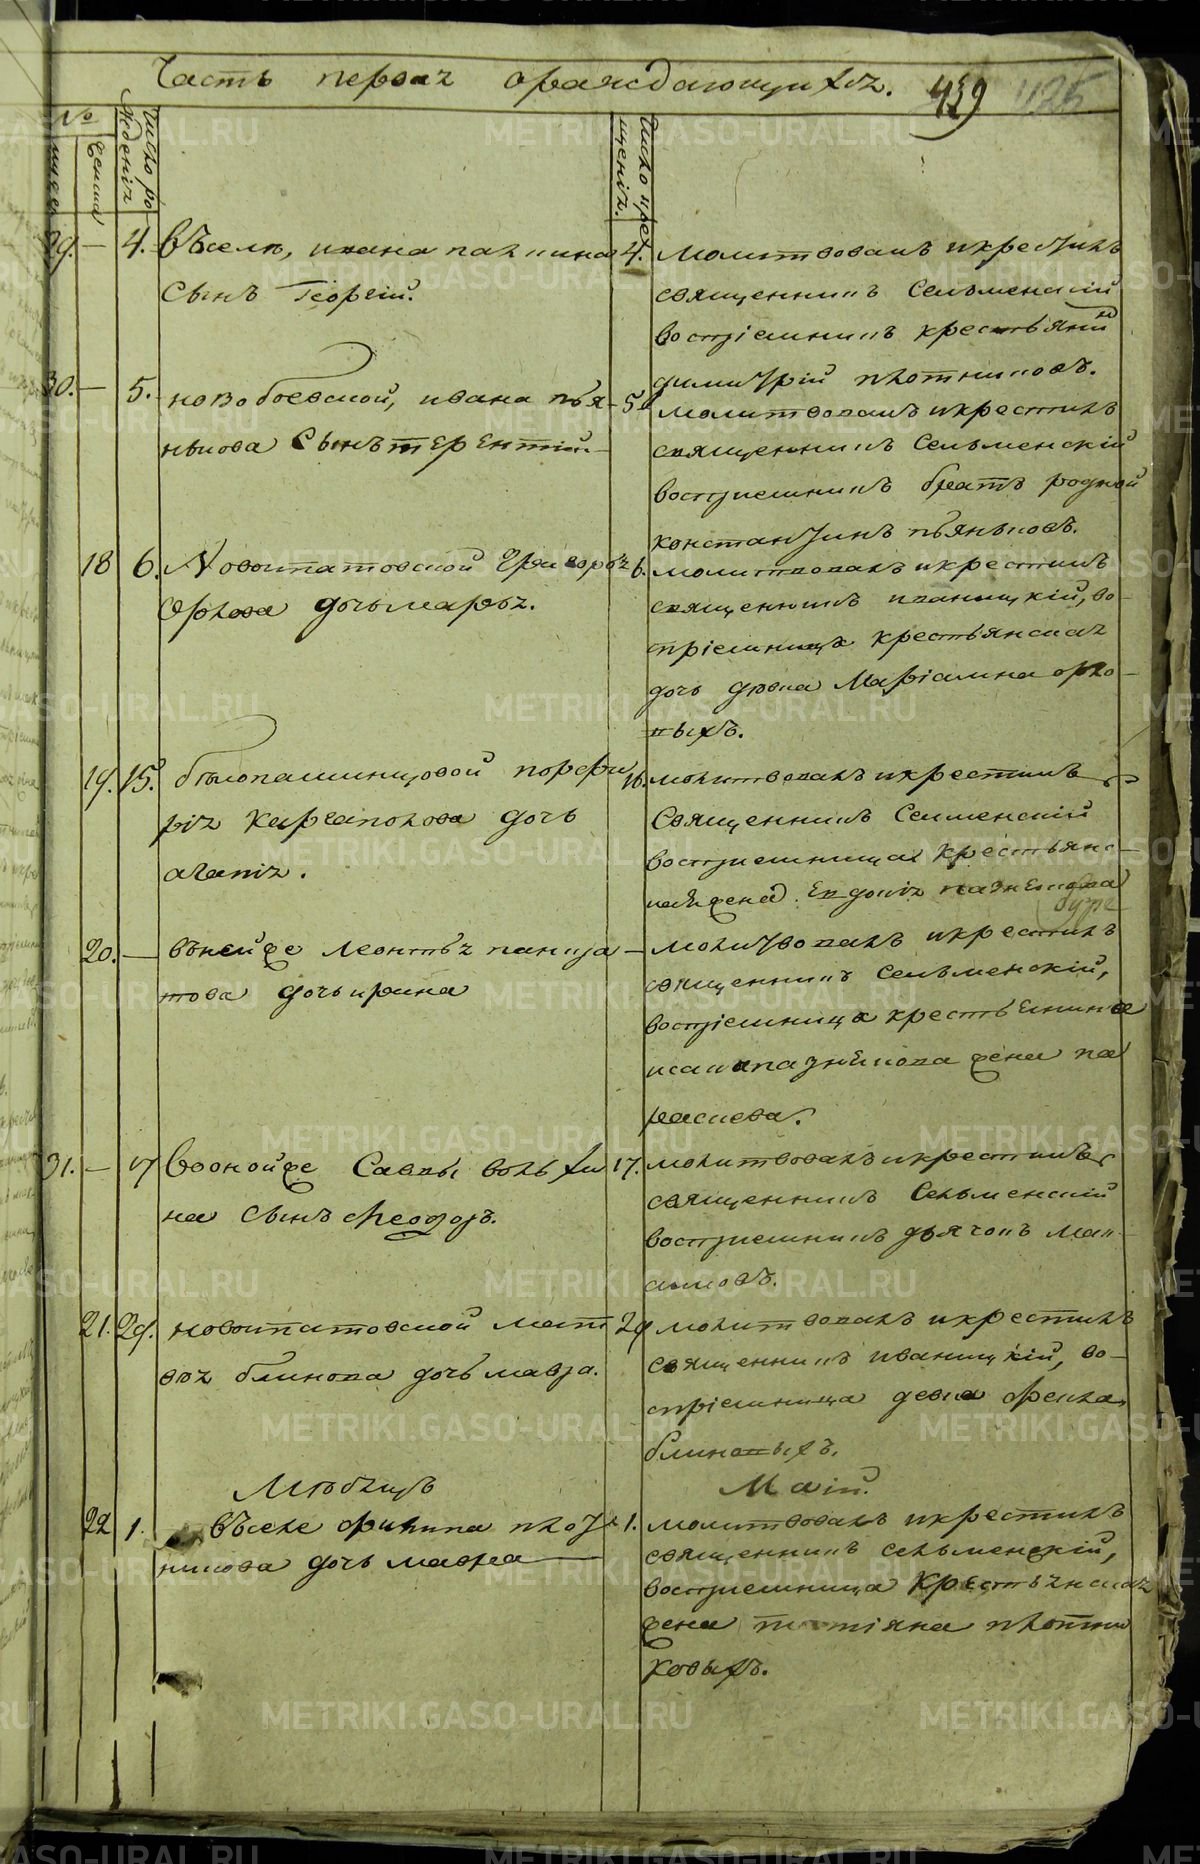 Часть первая ораждающихся. 459 425
№
мужеска
женска
Число рождения
Число крещения.
29. — 4. Въселѣ, ивана
сынъ Георгій.
4. Молитвовалъ икрестилъ
священникъ Селменскій
воспріемникъ крестьянинъ
димитрій плотниковъ.
30. — 5. новобоевской, ивана пья-
нькова Сынъ терентій
5. молитвовалъ икрестилъ
священникъ Селменскій
воспріемникъ братъ родной
константинъ пьяньковъ.
18 6. Новоипатовской Григорья
Орлова дочь марья.
6. молитвовалъ икрестилъ
священникъ иваницкій, во-
спріемница крестьянская
дочь девка Маріамна орло-
выхъ.
19. 15. бѣлопашинцовой порфи
рія Карганолова дочь
агапія.
16. молитвовалъ икрестилъ
Священникъ Селменскій
воспріемница крестьянс-
кая жена Евдокія
20. — вънейже леонтья панкра
това дочь ирина
— молитвовалъ икрестилъ
священникъ Селменскій,
воспріемница крестьянина
исака жена па
раскева.
31. — 17 Воонойже Саввы волхи
на сынъ Ѳеодоръ.
17. молитвовалъ икрестилъ
священникъ Селменскій
воспріемникъ дьячокъ Мак-
симовъ.
21. 29. новоипатовской мат
вея блинова дочь мавра.
29 молитвовалъ икрестилъ
священникъ иваницкій, во-
спріемница девка фекла
блиновыхъ.
Мѣсяцъ Маій.
22 1. Въселе филипа плот
никова дочь мавра
1. молитвовалъ икрестилъ
священникъ селменскій,
воспріемница крестьянская
жена татіяна плотни
ковыхъ.
METRIKI.GASO-URAL.RU